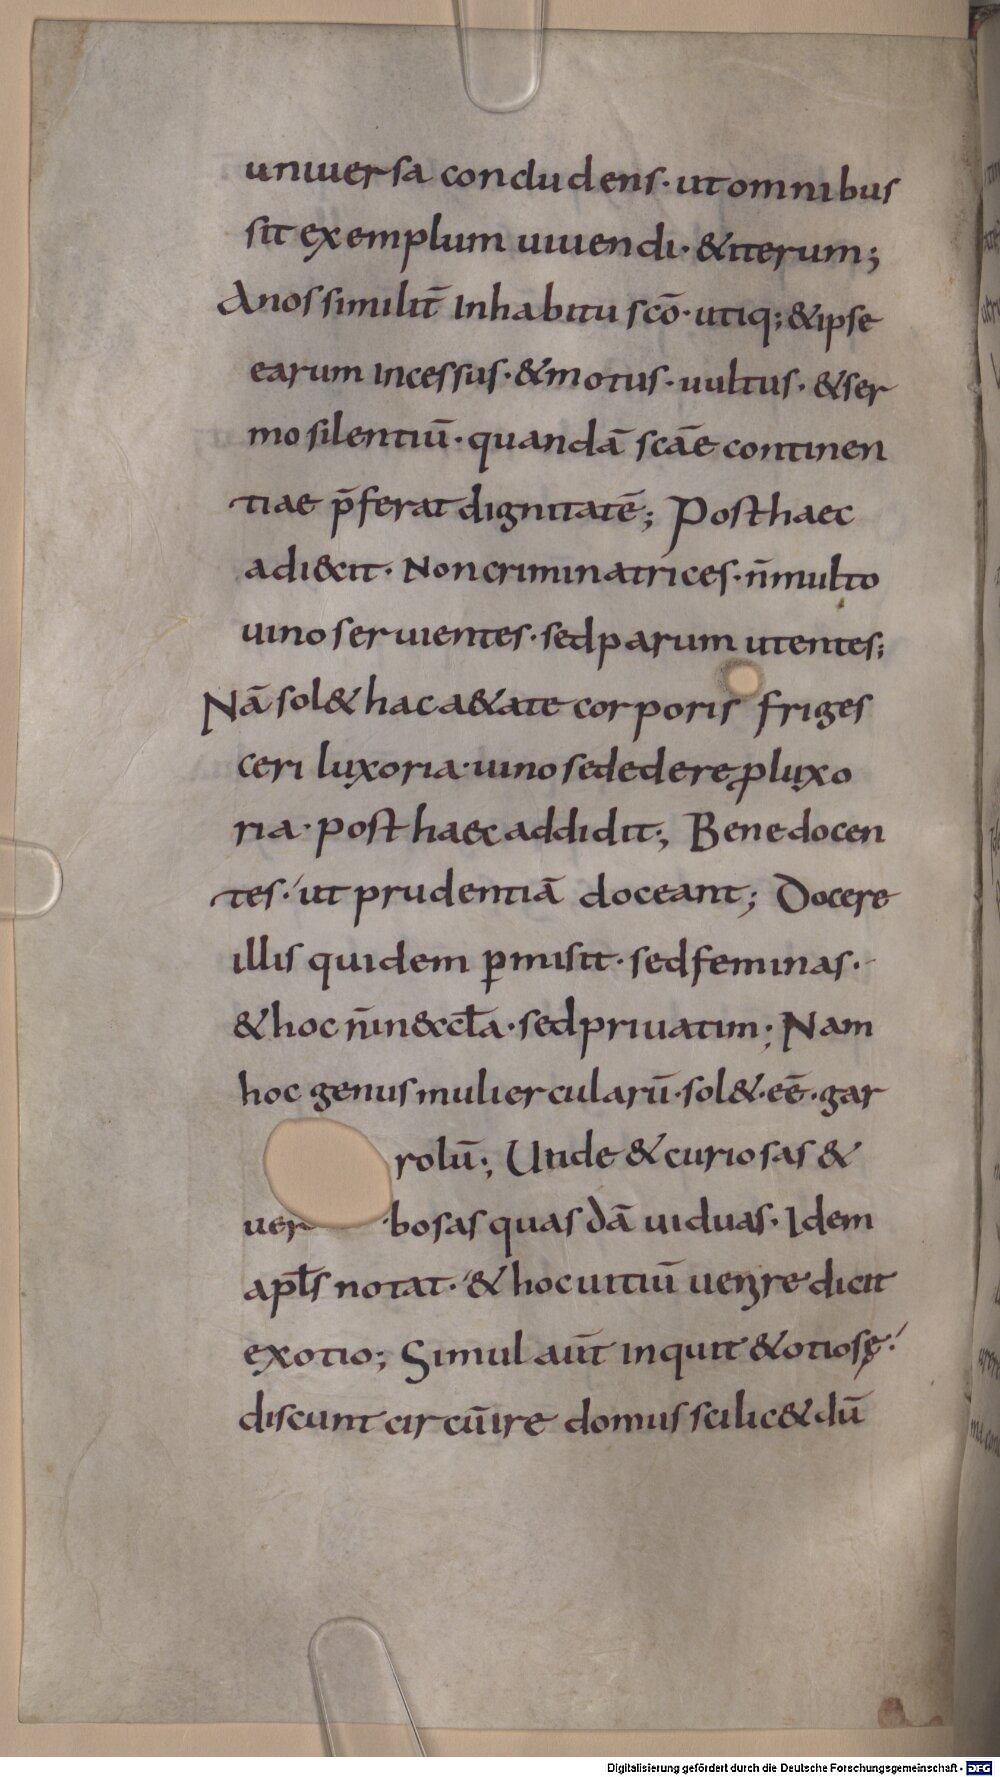 uniuersa concludens· ut omnibus
sit exemplum uiuendi· &iterum;
Anos similit̄ Inhabitu scō· utiq;; &ipse
earum Incessus· &motus· uultus· &ser
mo silentiū· quandā scāe continen
tiae p̄ferat dignitatē; Posthaec
adi&cit· Non criminatrices· n̄ multo
uino seruientes· sed parum utentes;
Nā sol& hac a&ate corporis friges
ceri luxoria· uino se dedere ꝓ luxo
ria· post haec addidit; Bene docen
tes·' ut prudentiā doceant; Docere
illis quidem ꝑmisit· sed feminas·
& hoc n̄ in &cl̄a· sed priuatim; Nam
hoc genus muliercularū· sol&· eē· gar
rolū·; Unde & curiosas &
uer bosas quas dā uiduas· Idem
apl̄s notat·' & hoc uitiū uenire dicit
ex otio; Simul aūt inquit & otiosę·'
discunt circūire domus scilic& dū
Digitalisierung gefördert durch die Deutsche Forschungsgemeinschaft - DFG